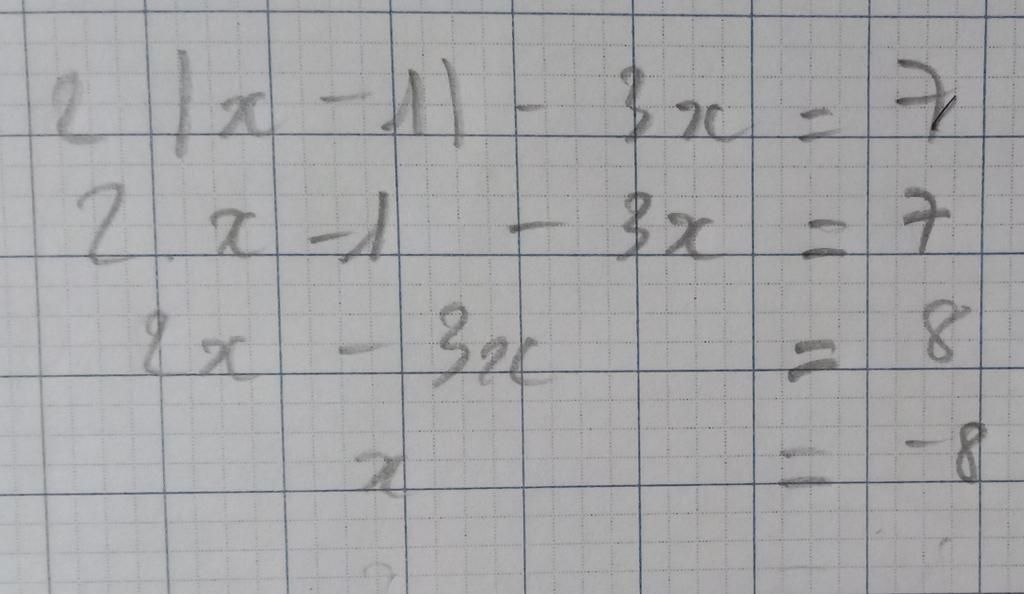 2 |x - 1| - 3x = 7
2 x - 1 - 3x = 7
2x - 3x = 8
x = -8